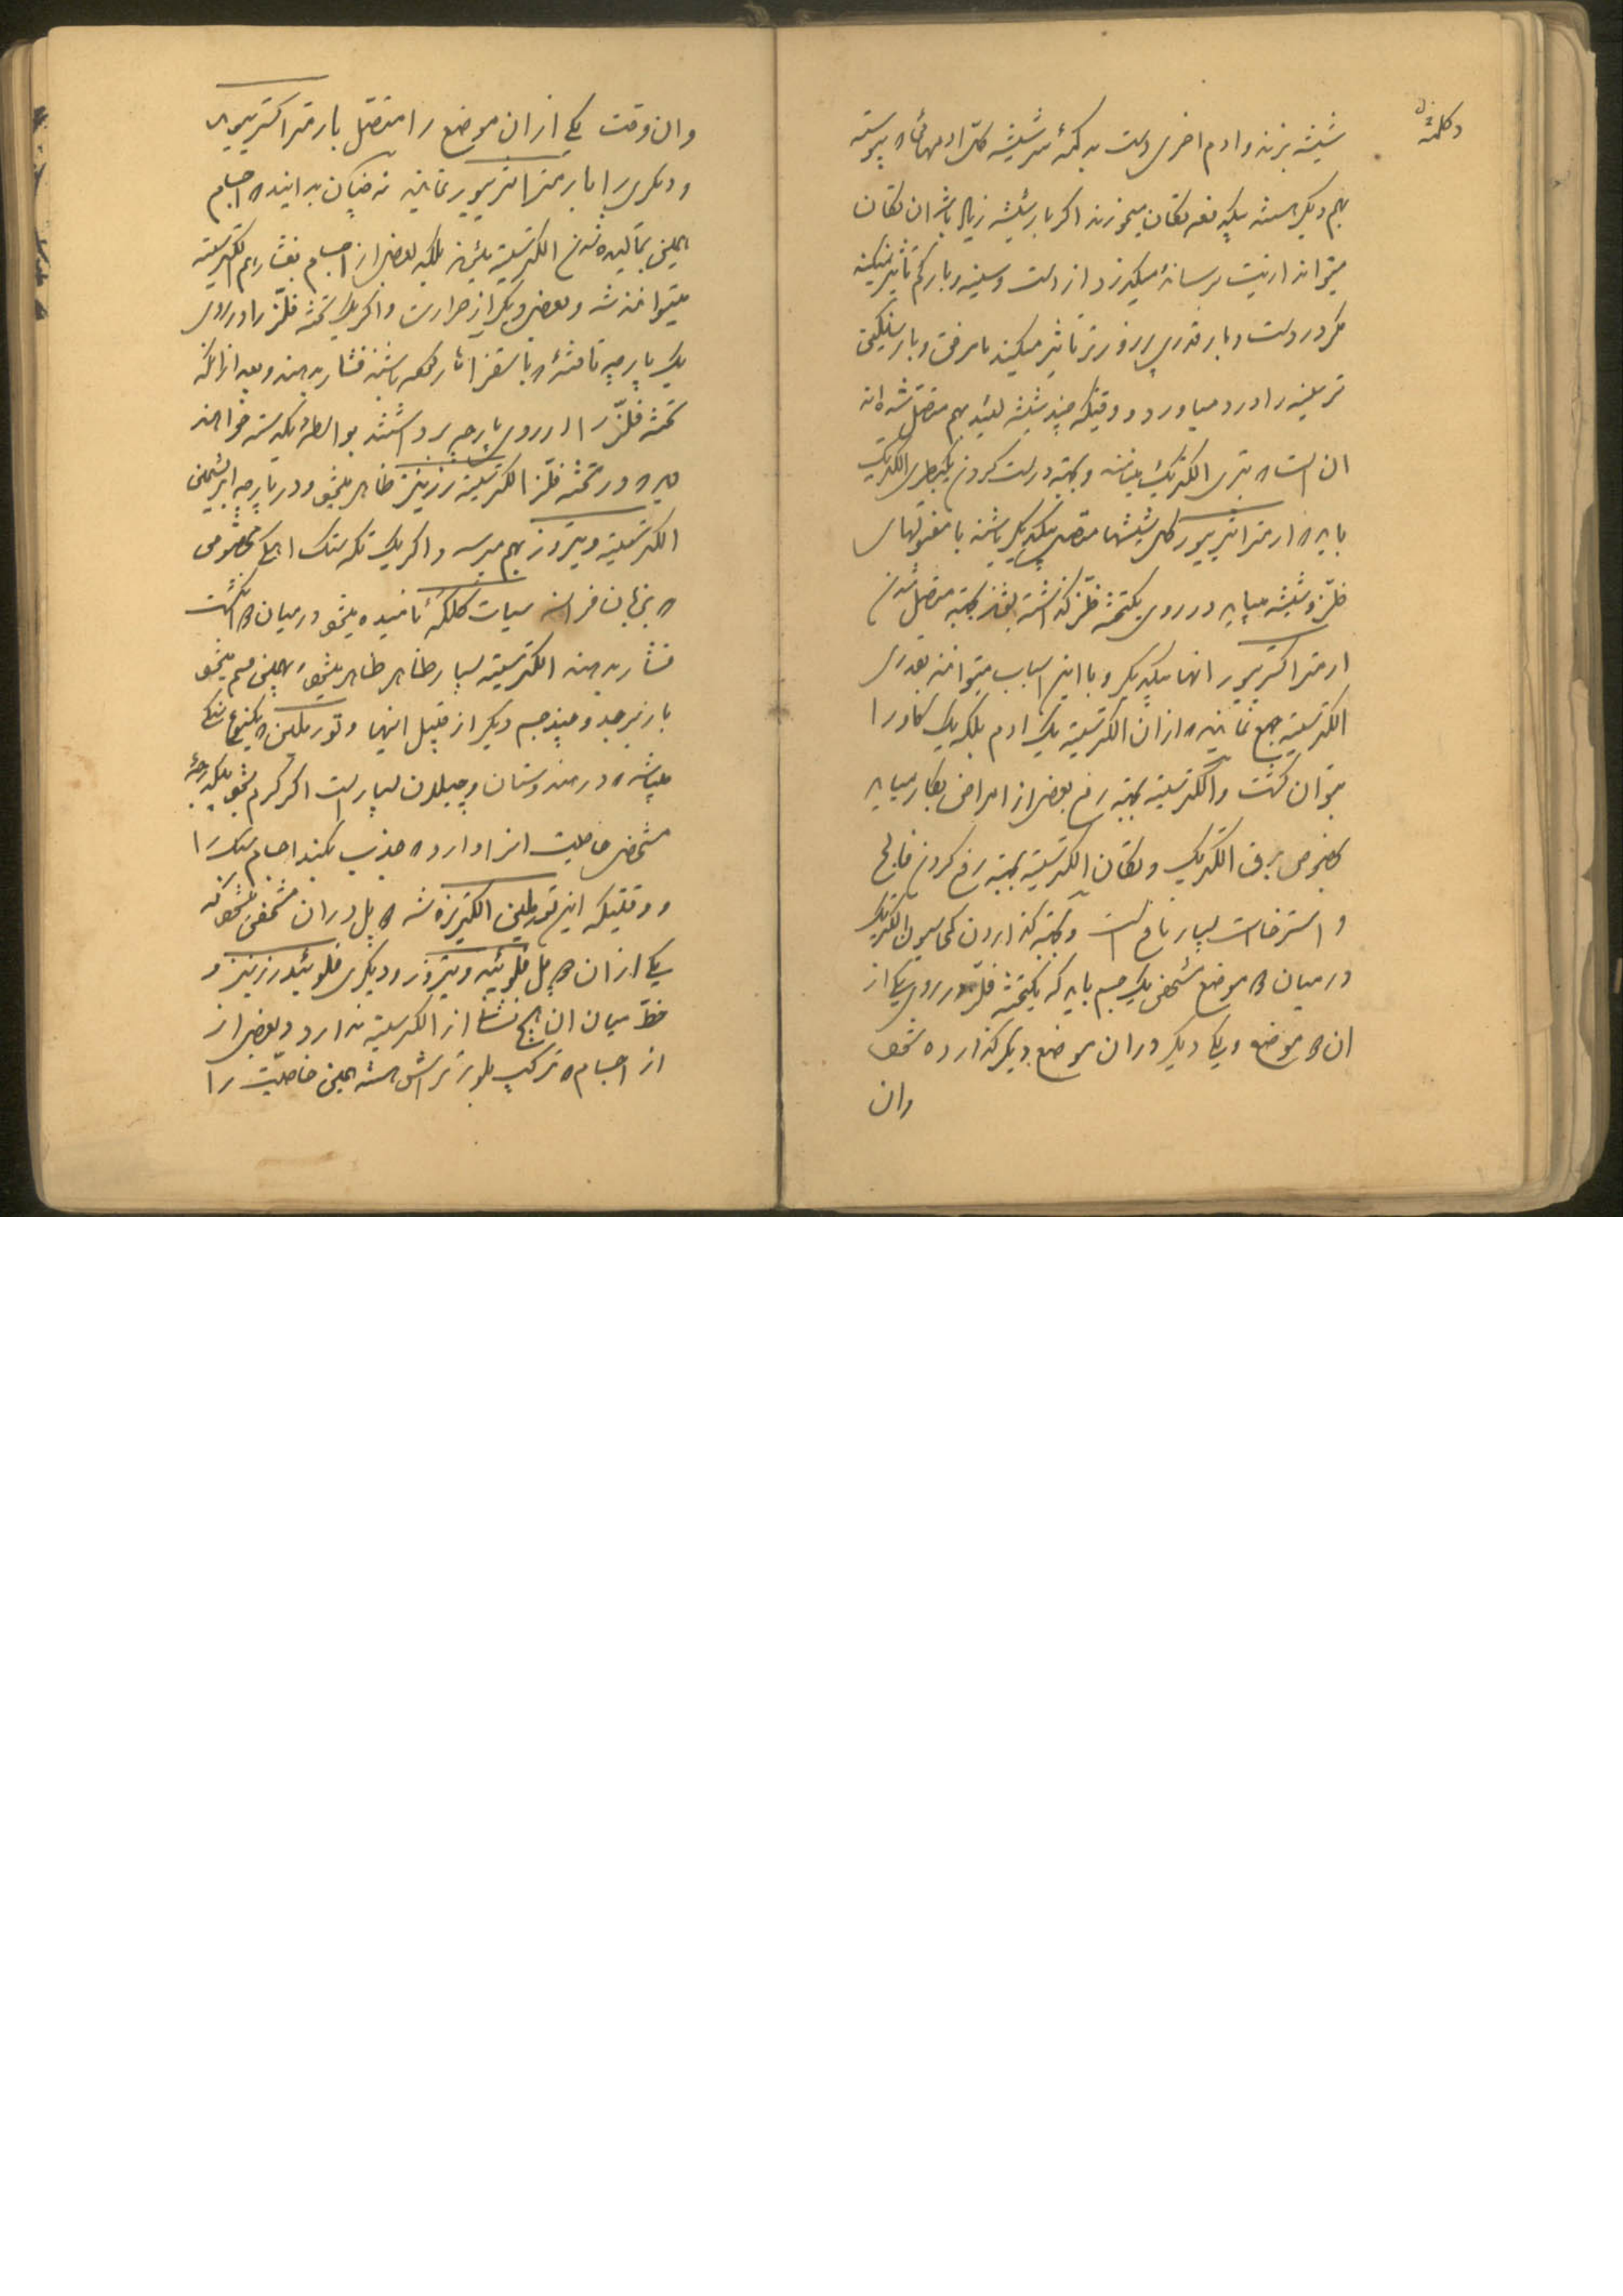 دکله
شیشه بزند و ادم اخری دست به کمهٔ سر شیشه کل ادمهائی که پیوسته
بهم دیگر هستند بیکدفعه تکان میخورند اگر بار شیشه زیاد باشد ان تکان
میتواند اذیت برساند میگذرد از دست و سینه و بار کم تاثیر نمیکند
مگر در دست و بار قدری پرزورتر تاثیر میکند تا مرفق و بار سنگین
تر سینه را درد میاورد و وقتیکه چند شیشه لید بهم متصل شده اند
ان است که بتری الکتریک مینامند و بجهة درست کردن یک بطری الکتریک
باید که ارمتر انتریور کل شیشها متصل بیکدیگر باشند با مفتولهای
فلز و شیشه میباید در روی یکتخته فلز گذاشته بجهة متصل شدن
ارمتر اکستریور انها بیکدیگر و با این اسباب میتوانند بقدری
الکتریسیته جمع نمایند که از ان الکتریسیته یک ادم بلکه یک گاو را
میتوان کشت و الکتریسیته بجهة رفع بعضی از امراض بکار میباید
بخصوص برق الکتریک و تکان الکتریسیته بجهة رفع کردن فالج
و استرخاست بسیار نافع است و بجهة گذاردن کماسیون الکتریک
در میان دو موضع شخص یک جسم باید که یکتخته فلز در روی یکی از
ان دو موضع و یکی دیگر در ان موضع دیگر گذارده شود
وان
وان وقت یکی از ان موضع را متصل بارمتر اکستریور
و دیگری را بارمتر انتریور نمایند نه چنان بدانید که اجسام
همین بمالیده شدن الکتریسیته بلکه بعضی از اجسام بفشار هم الکتریسیته
میتوانند شد و بعضی دیگر از حرارت و اگر یک تخته فلز را در روی
یک پارچه تافته که باشند فشار بدهند و بعد از انکه
تخته فلز را از روی پارچه برداشتند بواسطه یکدسته خواهند
دید که در تخته فلز الکتریسیته رزینیز ظاهر میشود و در پارچه ابریشمی
الکتریسیته ویتروز بهم میرسد و اگر یک تکه سنک مخصوص
که بزبان فرانسه سپات کلکر نامیده میشود در میان دو انگشت
فشار بدهند الکتریسیته بسیار ظاهر میشود همین قسم میشود
با زبرجد و چند جسم دیگر از قبیل اینها و تورملین که یکنوع سنگی
میباشد که در هندوستان و چیلان بسیار است اگر گرم شود بیکدرجهٔ
مشخص خاصیت انرا دارد که جذب بکند اجسام سبک را
و وقتیکه این تورملین الکتریزه شد دو پل در ان مشخص میشود که
یکی از ان دو پل فلوئید ویتروز و دیگری فلوئید رزینیز و
خط میان ان هیچ نشانی از الکتریسیته ندارد و بعضی از
از اجسام که ترکیب بلور تراش هستند همین خاصیت را